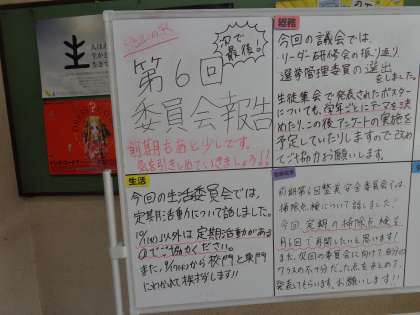 次で
最後。
第6回
委員会報告
前期もあと少しです。
気を引きしめていきましょう!!
生活
今回の生活委員会では、
定期活動について話しました。
以外は定期活動がある
ので協力ください。
また、から校門と東門
にわかれて挨拶します!!
総務
今回の議会では、
リーダー研修会の振り返り
選挙管理委員の選出
をしました。
生徒集会で発表されたポスター
についても、学年ごとにテーマを決
めたり、この後アンケートの実施を
予定していたりしますので改め
てご協力お願いします。
前期第6回整美安全委員会では、
掃除点検について話しました!
今回、定期の掃除点検を
で再開したいと思います!
また、次回の委員会に向けて自分の
クラスの不十分だった点をまとめて、
発表してもらいます。お願いします!!